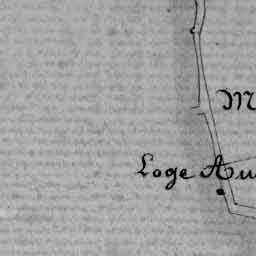 M
Loge Au